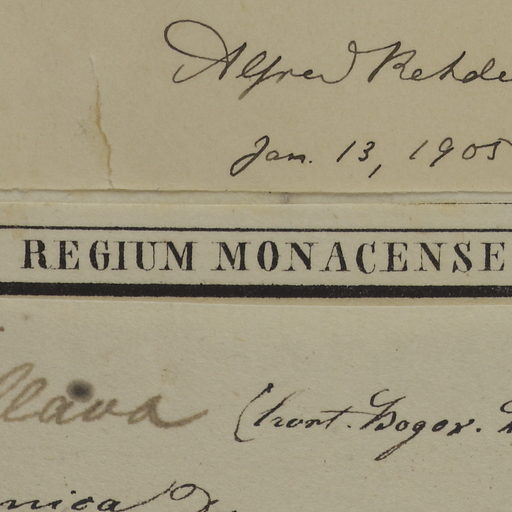 Alfred Rehde
Jan. 13, 1905
REGIUM MONACENSE
(hort. Bogor.